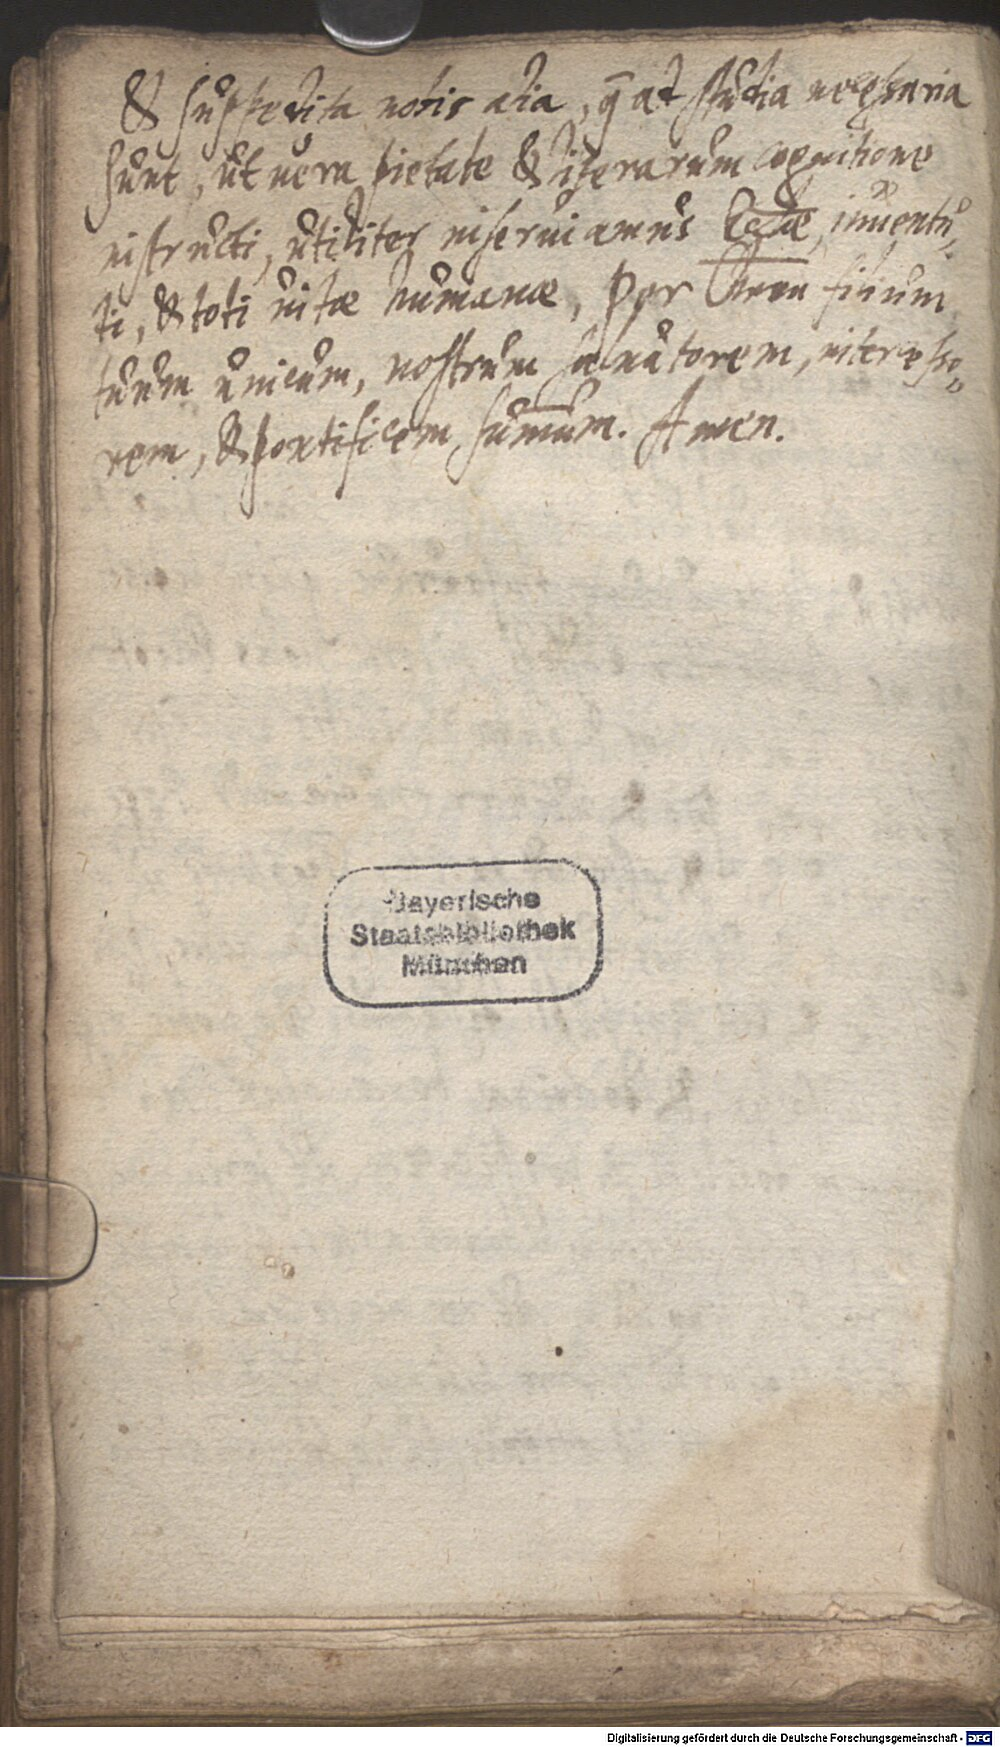 & suppedita nobis alia, q̄ ad studia necessaria
sunt, ut vera pietate & literarum cognitione
instructi, utiliter inserviamus Eccliæ, iuventu-
ti, & toti vitæ humanæ, Per filium
tuum unicum, nostrum salvatorem, intercesso-
rem, & pontificem sum̄um. Amen.
Bayerische
Staatsbibliothek
München
Digitalisierung gefördert durch die Deutsche Forschungsgemeinschaft - DFG